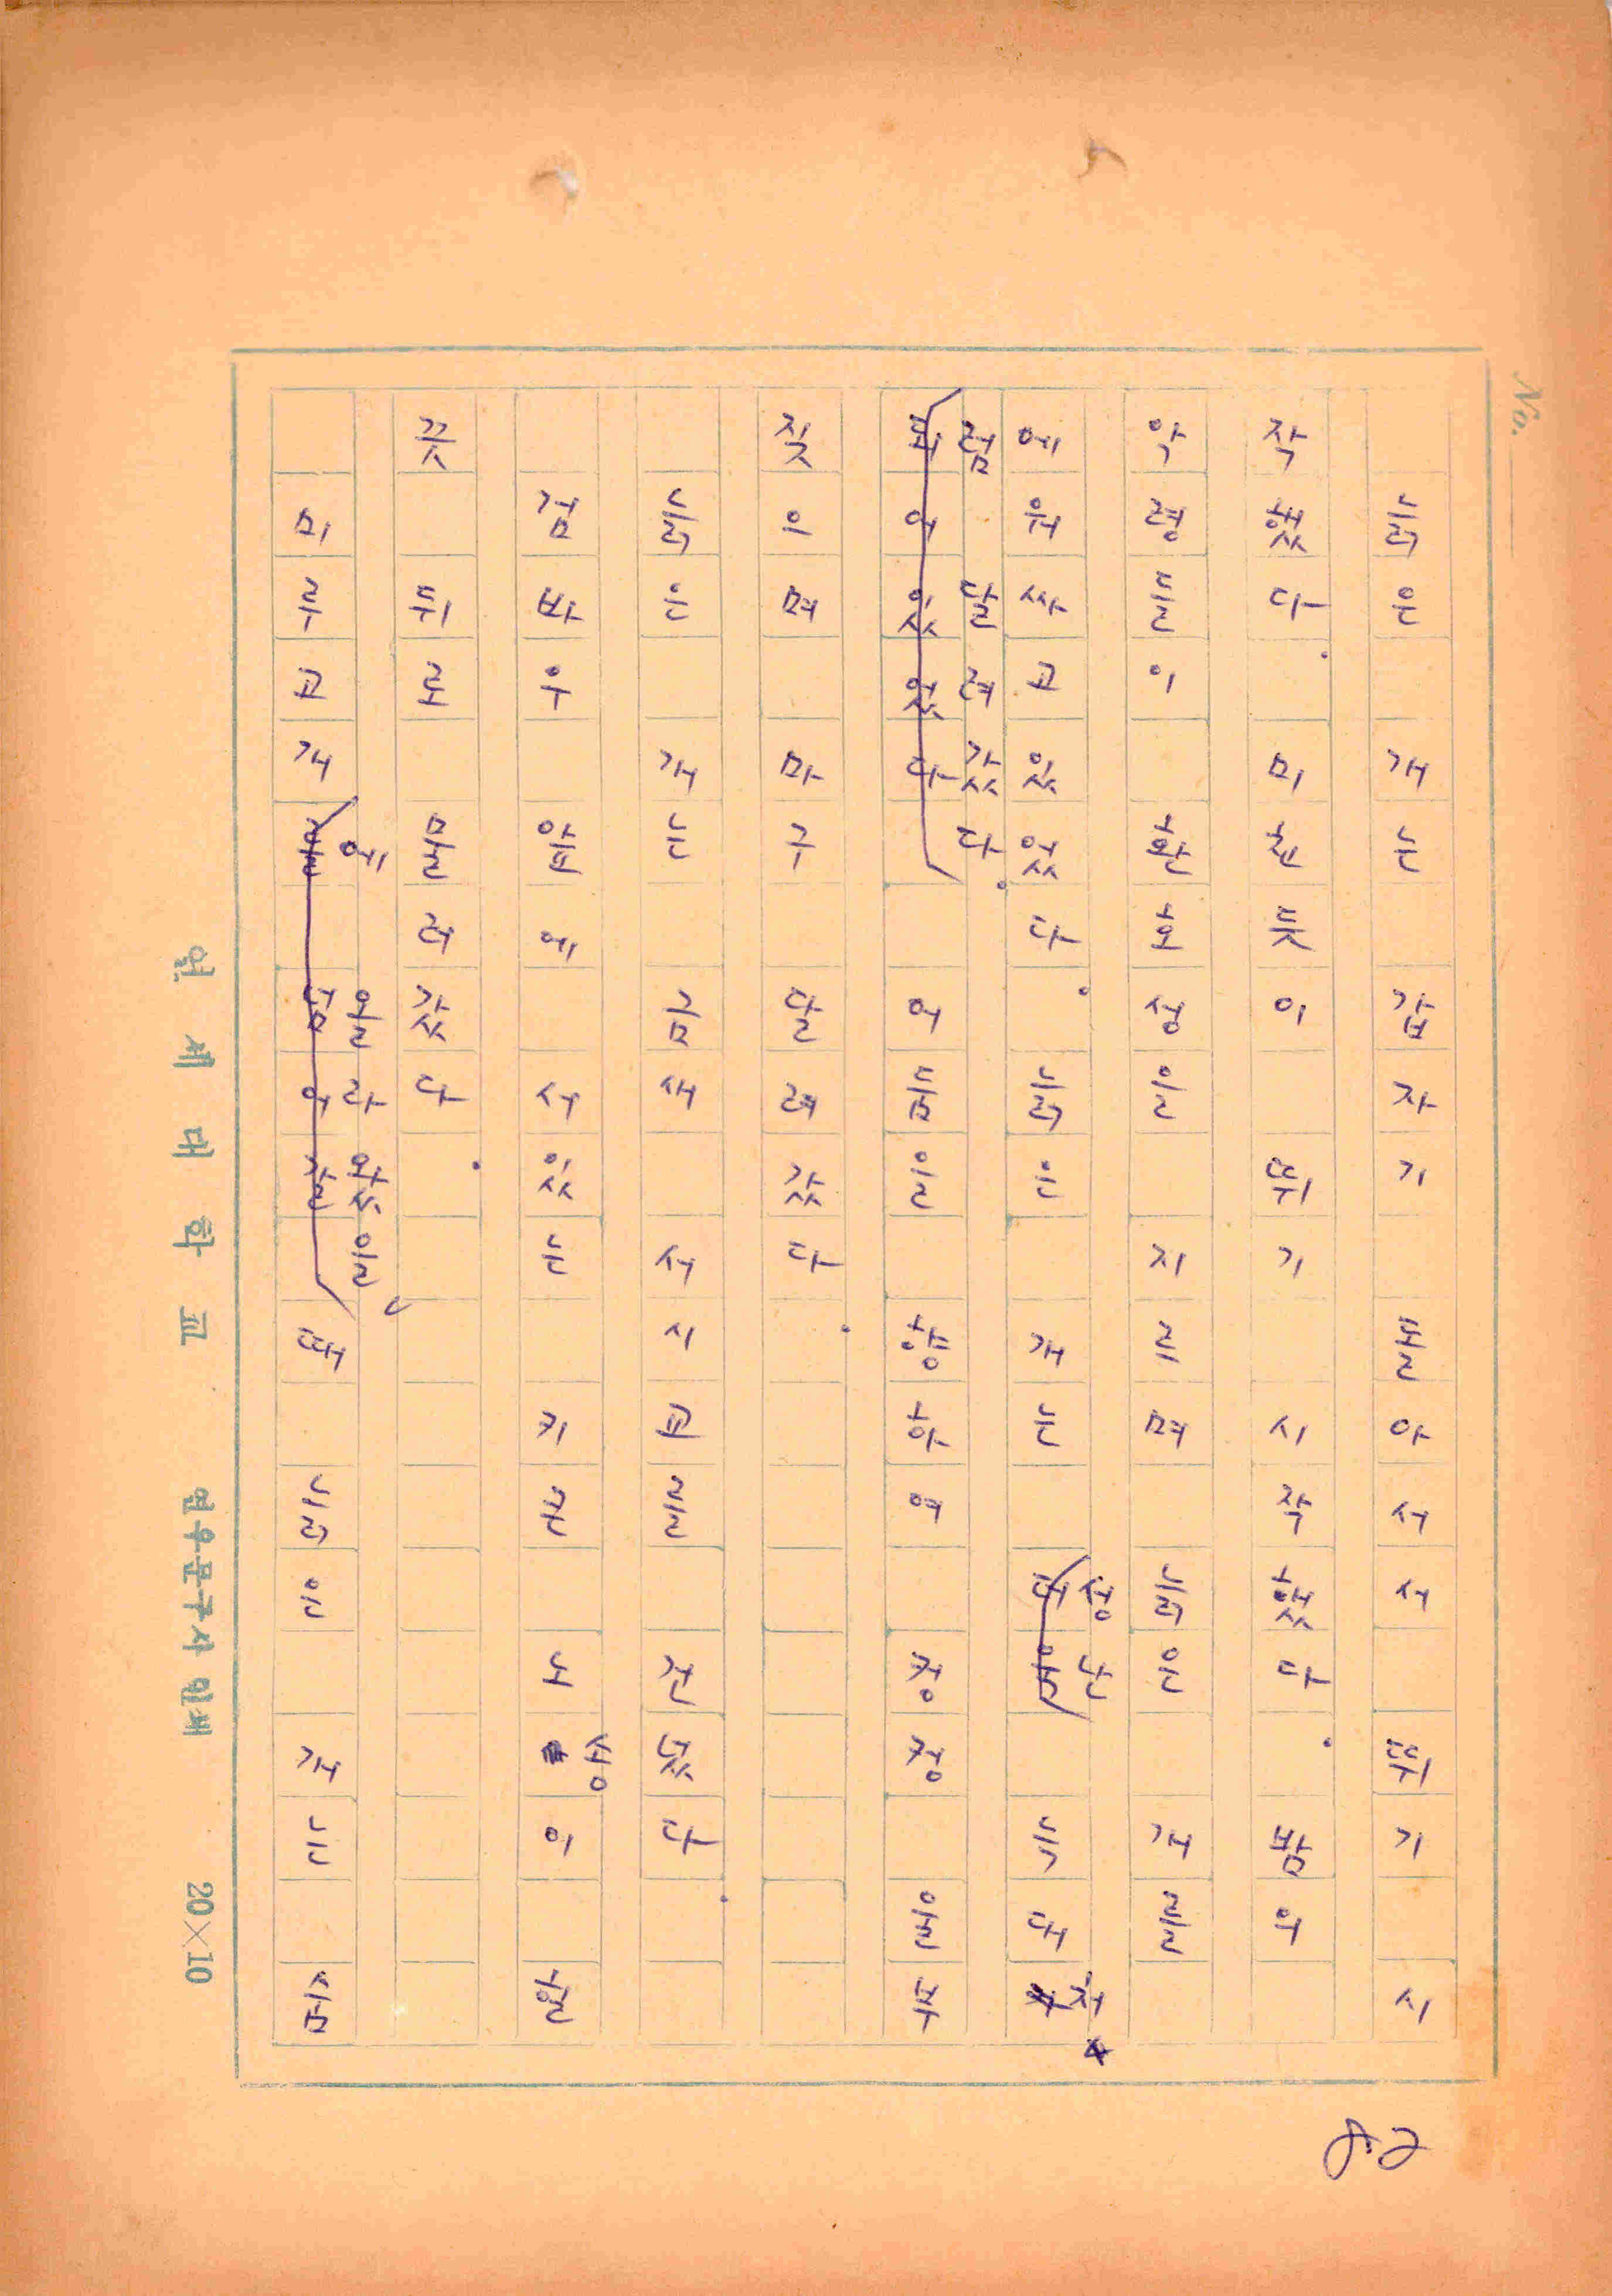 No.
82
늙은 개는 갑자기 돌아서서 뛰기 시
작했다. 미친듯이 뛰기 시작했다. 밤의
악령들이 환호성을 지르며 늙은 개를
에워싸고 있었다. 늙은 개는 성난 늑대처
럼 달려갔다. 어둠을 향하여 컹컹 울부
짖으며 마구 달려갔다.
늙은 개는 금새 서시교를 건넜다.
검바우 앞에 서있는 키큰 이 할
끗 뒤로 물러갔다.
미루고개에 올라왔을 때 늙은 개는 짐
연세대학교 연우문구사 인쇄 20×10